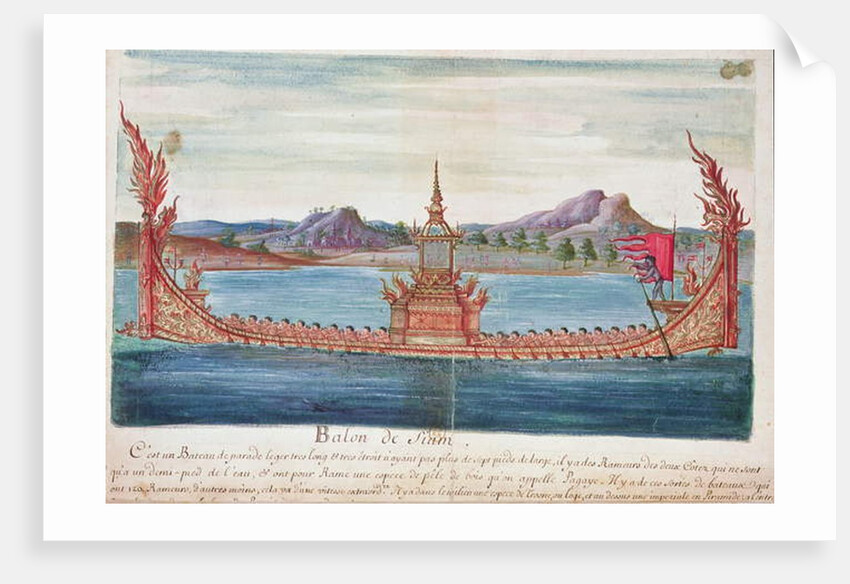 Balon de Siam
C'est un Bateau de parade leger tres long & tres étroit n'ayant pas plus de sept pieds de large, il y a des Rameurs des deux Côtez qui ne sont
qu'a un demi-pied de l'eau, & ont pour Rame une espece de pêle de bois qu'on appelle Pagaye. Il y a de ces sortes de bateaux qui
ont 120 Rameurs, d'autres moins, cela va d'une vitesse extraord.re Il y a dans le milieu une espece de Trosne, ou loge, et au dessus une imperiale en Piramide